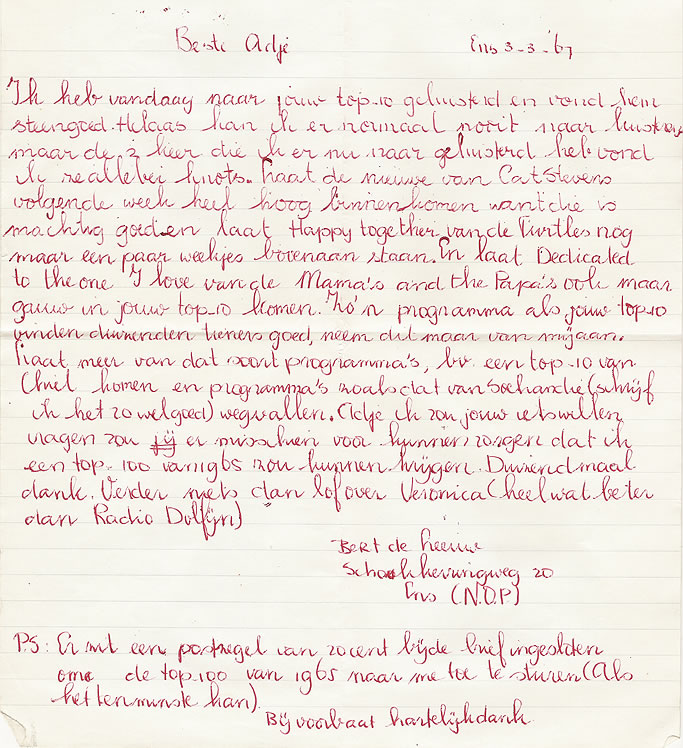 Beste Adje Ens 3-3-'67
Ik heb vandaag naar jouw top-10 geluisterd en vond hem
steengoed. Helaas kan ik er normaal nooit naar luisteren
maar de 2 keer die ik er nu naar geluisterd heb vond
ik ze allebei knots. Laat de nieuwe van Cat Stevens
volgende week heel hoog binnenkomen want die is
machtig goed en laat Happy together van de Turtles nog
maar een paar weekjes bovenaan staan. En laat Dedicated
to the one I love van de Mama's and the Papa's ook maar
gauw in jouw top-10 komen. Zo'n programma als jouw top-10
vinden duizenden tieners goed, neem dit maar van mij aan.
Laat meer van dat soort programma's, bv. een top-10 van
Chiel komen en programma's zoals dat van (schrijf
ik het zo wel goed) wegvallen. Adje ik zou jouw iets willen
vragen zou jij er misschien voor kunnen zorgen dat ik
een top-100 van 1965 zou kunnen krijgen. Duizendmaal
dank. Verder niets dan lof over Veronica (heel wat beter
dan Radio Dolfijn)
Bert de Leeuw
20
Ens (N.O.P)
PS: Er zit een postzegel van 20 cent bij de brief ingesloten
om de top 100 van 1965 naar me toe te sturen (Als
het tenminste kan).
Bij voorbaat hartelijk dank